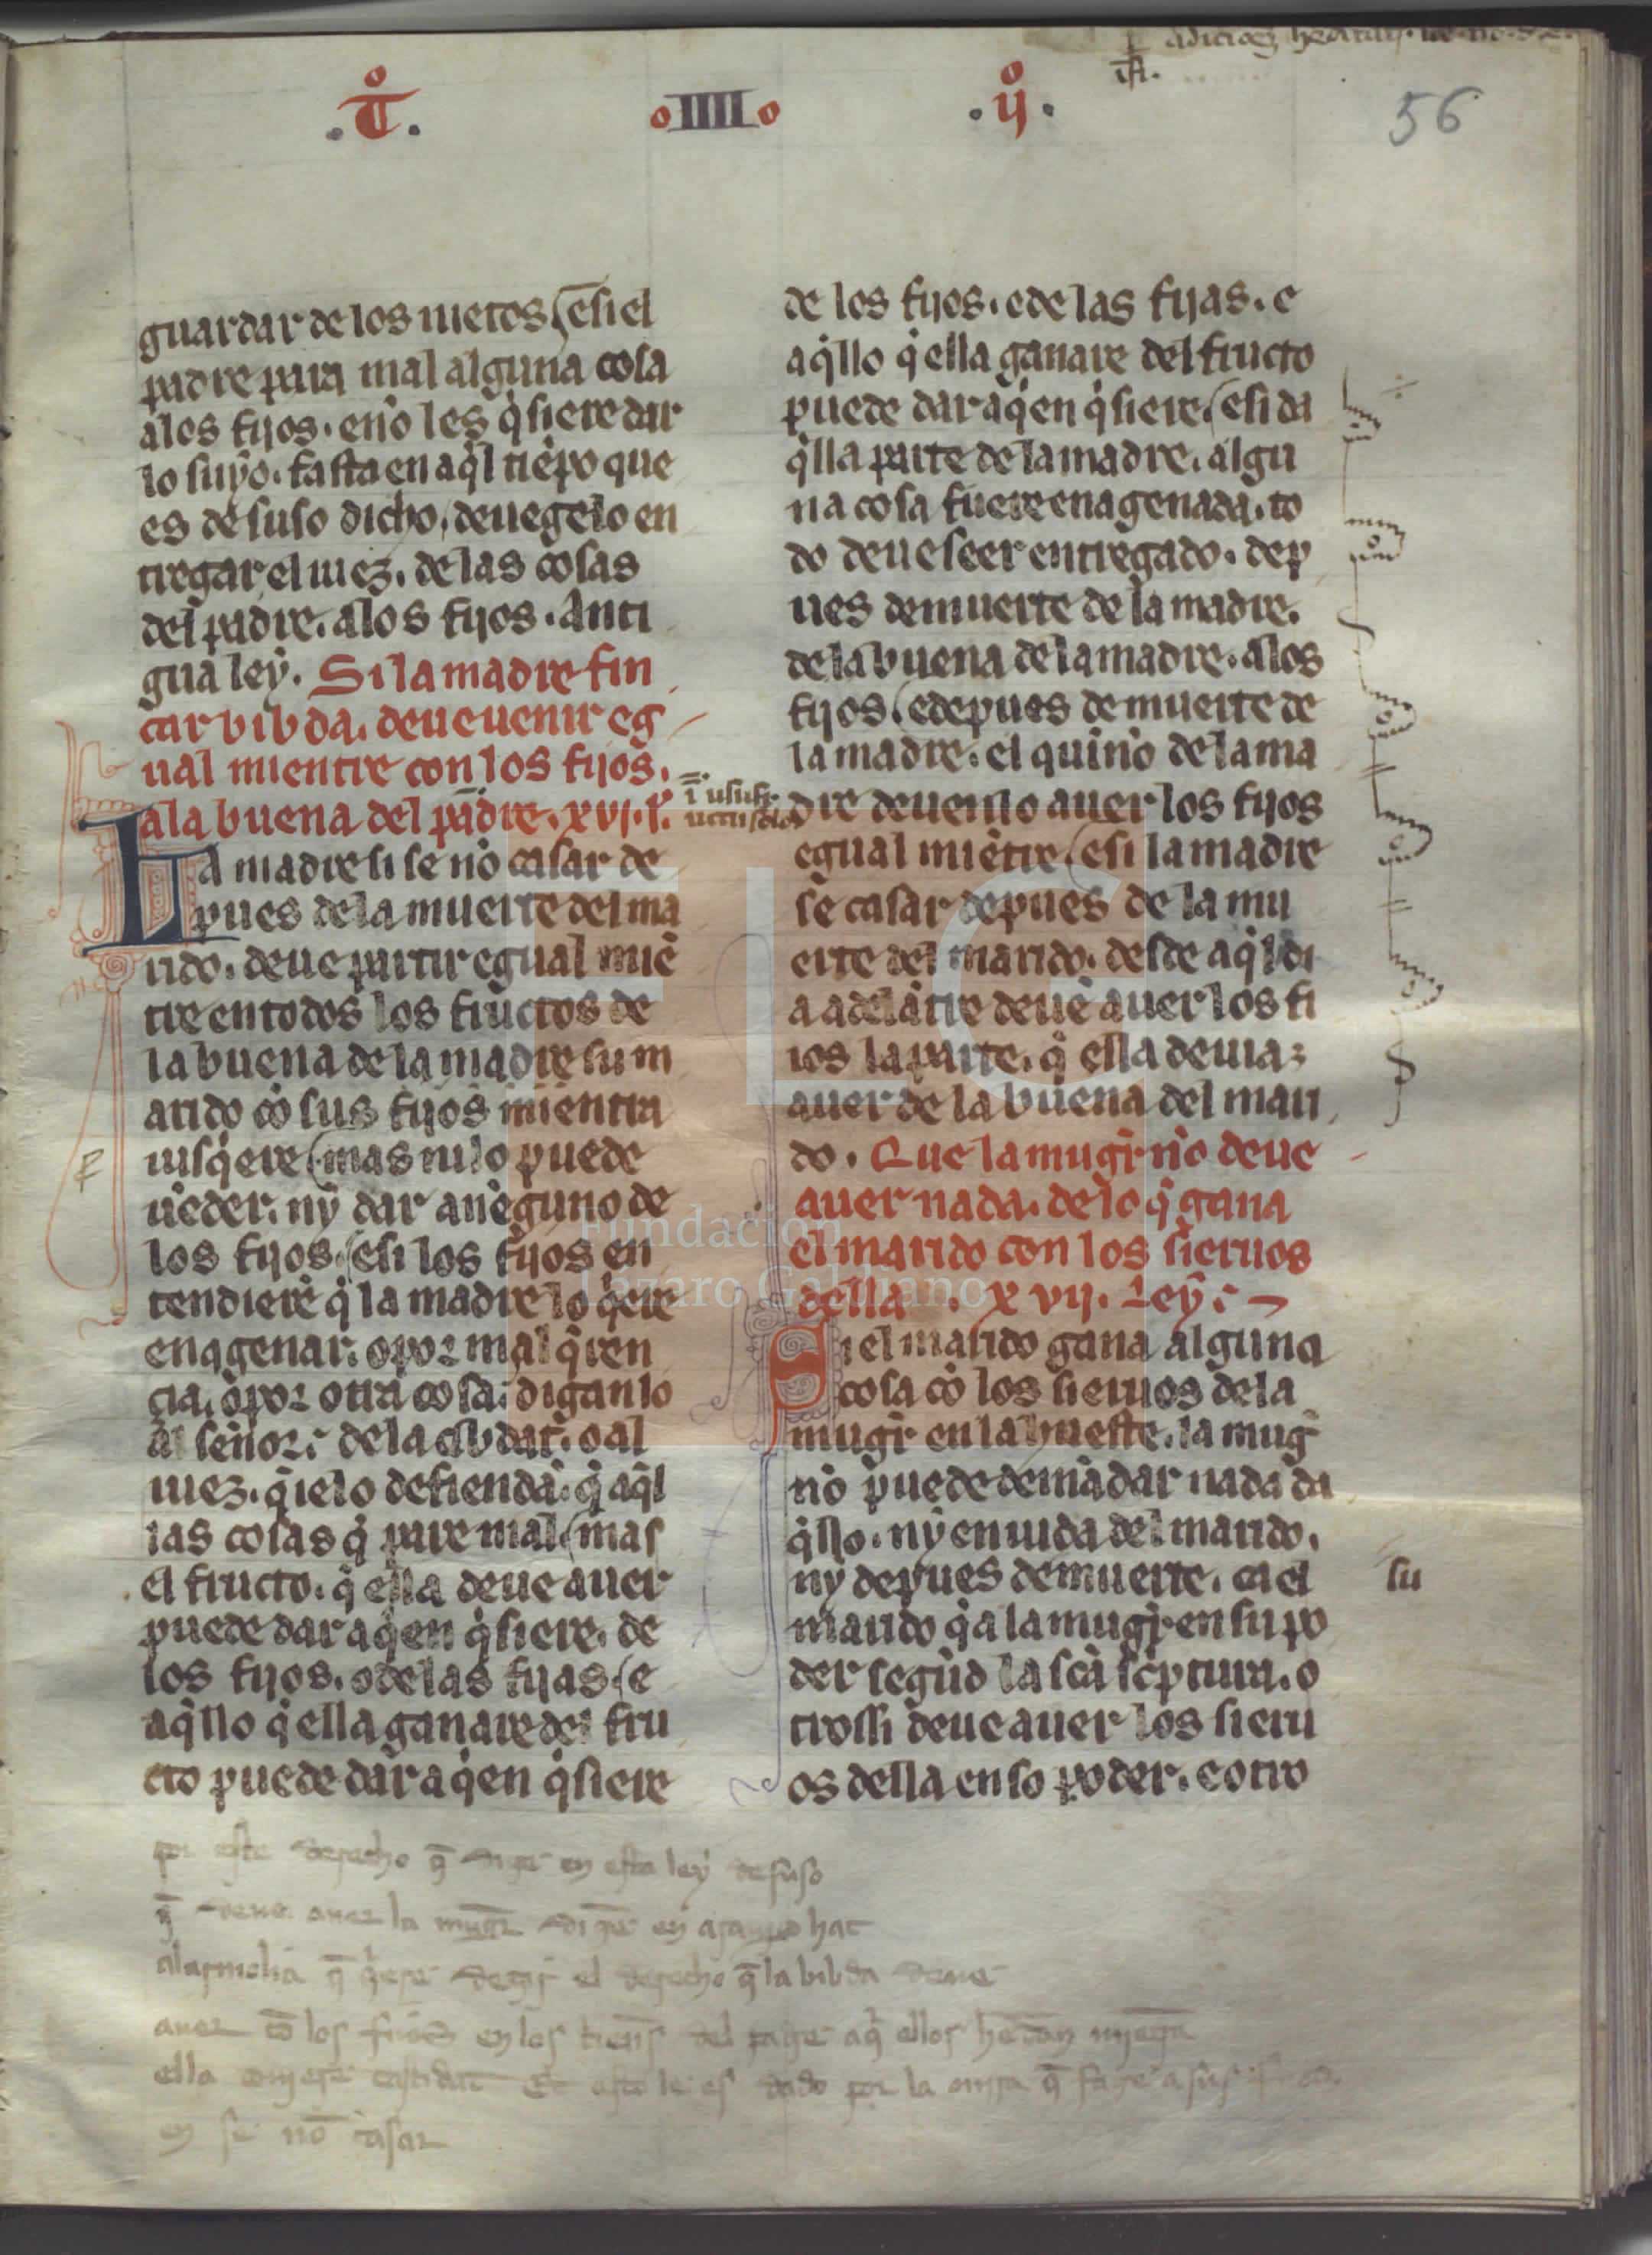 .T̊. oIIIIo .ij̊.
56
guardar de los nietos (e si el
padre para mal alguna cosa
a los fijos. e nͦo les qͥsiere dar
lo suyo. fasta en aq̄l tiēpo que
es de suso dicho, deuegelo en
tregar el iuez. de las cosas
del padre. a los fijos. Anti
gua ley. Si la madre fin
car bibda. deue uenir eg
ual mientre con los fijos.
a la buena del padre. xvj. l.
La madre si se nͦo casar de
pues de la muerte del ma
rido. deue partir egual miē
tre en todos los fructos de
la buena de la madre su m
arido cō sus fijos mientra
uisqͥere (mas ni lo puede
uēder. ny dar a nēguno de
los fijos. (e si los fijos en
tendierē q̄ la madre lo qͥere
enagenar. o por mal qͥren
cia. o por otra cosa. diganlo
al señor de la cibdat. o al
iuez. qͥ ielo defiendā. q̄ aq̄l
las cosas q̄ pare mal (mas
el fructo. q̄ ella deue auer
puede dar a qͥen qͥsiere. de
los fijos. o de las fijas (e
aq̄llo q̄ ella ganare del fru
cto puede dar a qͥen qͥsiere
de los fijos. e de las fijas. e
aq̄llo q̄ ella ganare del fructo
puede dar a qͥen qͥsiere. (e si da
q̄lla parte de la madre. algu
na cosa fuere enagenada. to
do deue seer entregado. dep
ues de muerte de la madre.
de la buena de la madre. a los
fijos (e depues de muerte de
la madre. el quinͦo de la ma
dre deuenlo auer los fijos
egual miētre (e si la madre
se casar depues de la mu
erte del marido. desde aq̄l di
a adelātre deuē auer los fi
ios la parte. q̄ ella deuia
auer de la buena del mari
do. Que la mugr̄ nͦo deue
auer nada. de lo q̄ gana
el marido con los sieruos
della. xvij. Ley
Si el marido gana alguna
cosa cō los sieruos de la
mugr̄ en la hueste. la mugr̄
nͦo puede demādar nada da
q̄llo. ny en uida del marido.
ny depues de muerte. ca el
su
marido q̄ a la mugr̄ en su po
der segūd la scā scͥptura. o
trossi deue auer los sieru
os della en so poder. e otro
por este derecho q̄ dize en esta ley de suso
q̄ deue auer la mugr̄
q̄ qͥere dezir el derecho q̄ la bibda deue
auer cō los fijos en los bienes del padre
ella
en se nō casar